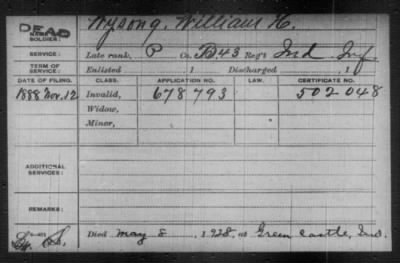 DEAD Wysong, William H.
NAME
SOLDIER:
SERVICE: Late rank, P Co. B 43 Reg't Ind Inf
TERM OF SERVICE: Enlisted 1 Discharged , 1
DATE OF FILING. CLASS. APPLICATION NO. LAW. CERTIFICATE NO.
1888 Nov. 12 Invalid, 678793 502048
Widow,
Minor,
ADDITIONAL SERVICES:
REMARKS:
Died May 8 1928, at Green Castle, Ind.